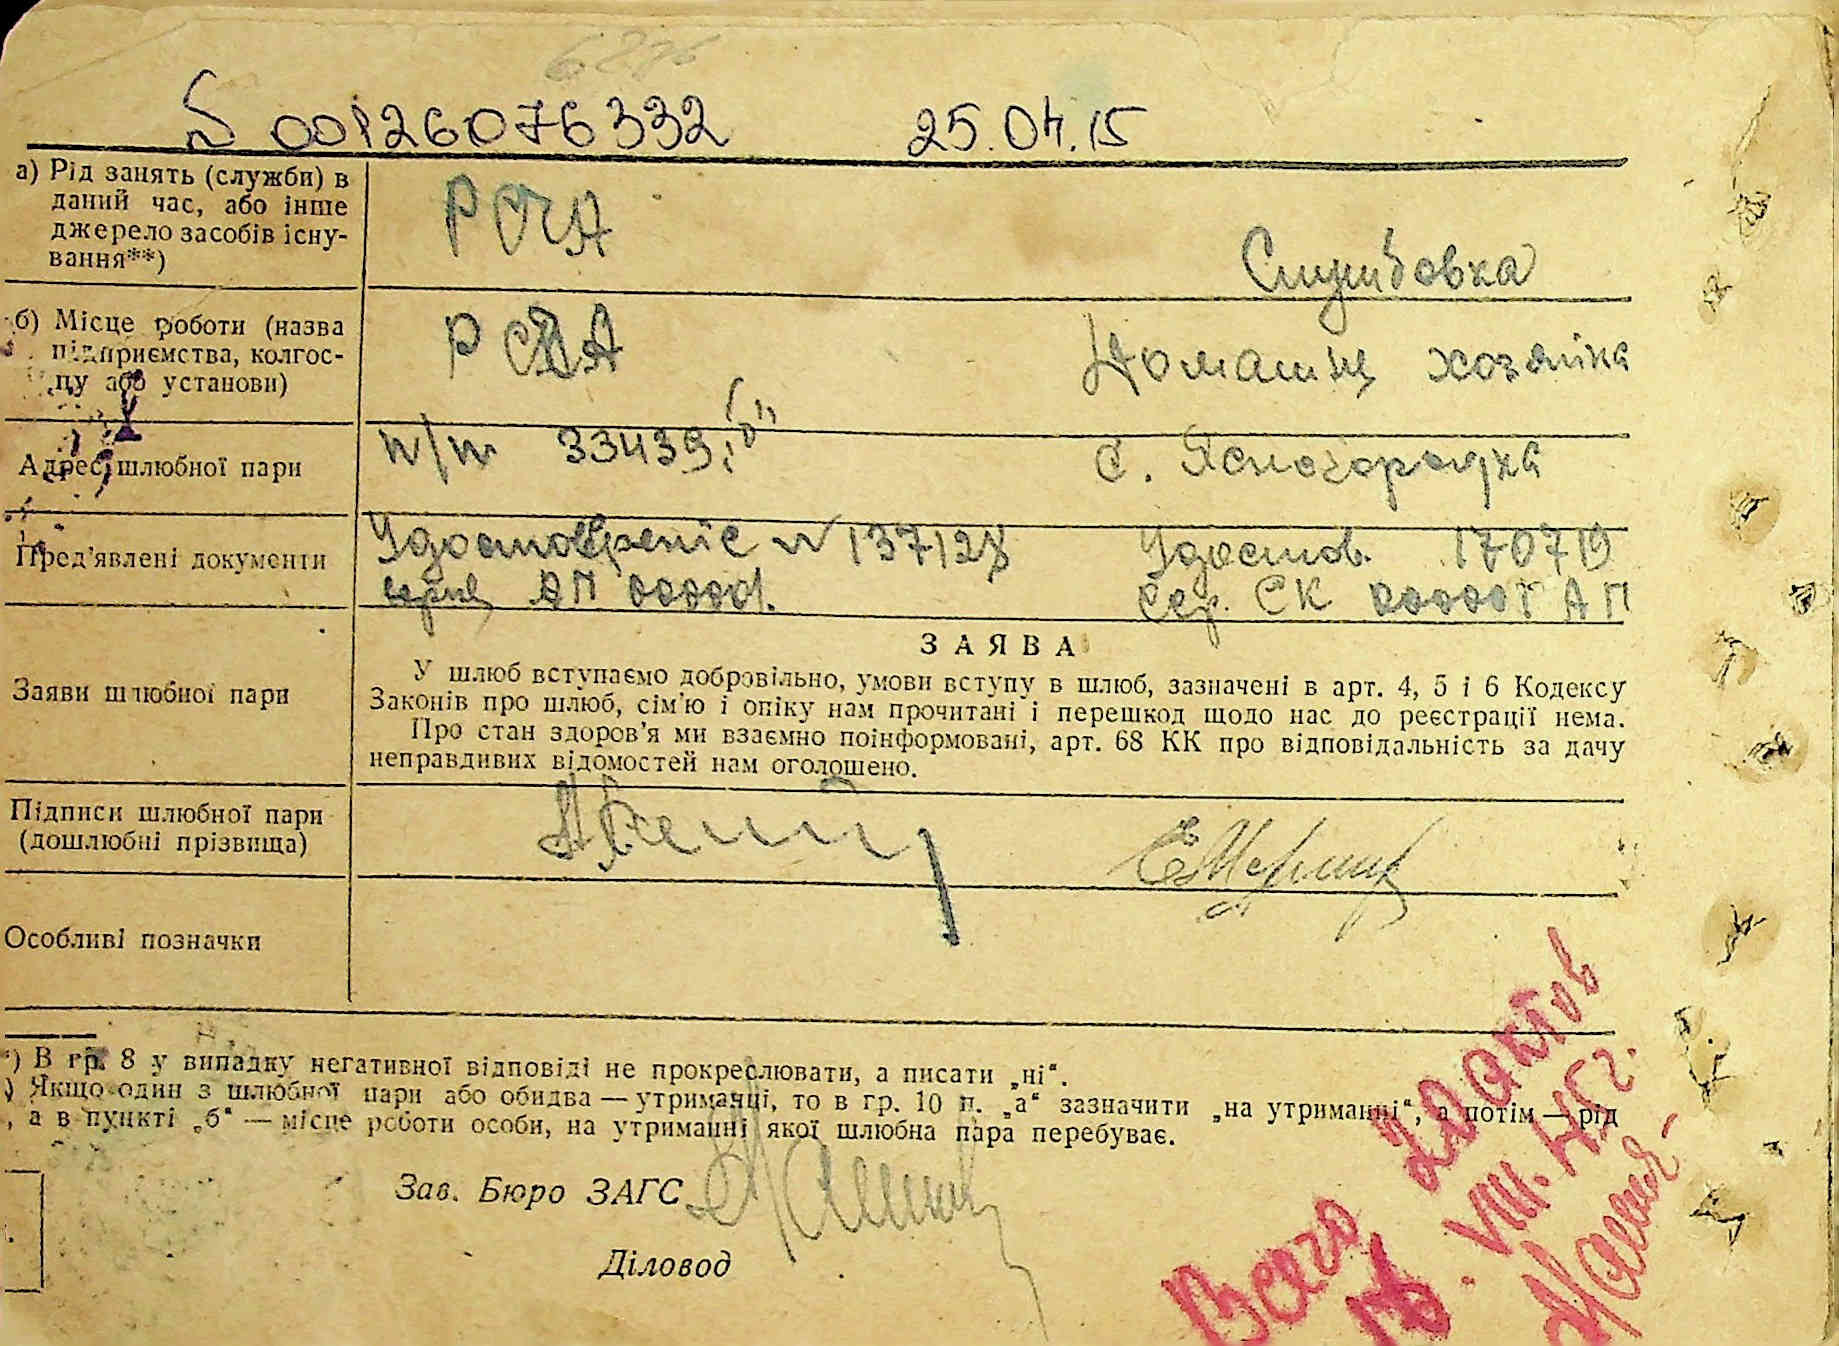 S 00126076332 25.04.15
а) Рід занять (служби) в
даний час, або інше
джерело засобів існу-
вання**)
РСЧА
Службовка
б) Місце роботи (назва
підприємства, колгос-
пу або установи)
Домашня хозяйка
Адрес шлюбної пари
п/п 33439 „б"
с. Ясногородка
Пред'явлені документи
Удостоверение № 137128
серия АП 00001.
Удостов. 170719
Сер. СК 00000 АП
Заяви шлюбної пари
ЗАЯВА
У шлюб вступаємо добровільно, умови вступу в шлюб, зазначені в арт. 4, 5 і 6 Кодексу
Законів про шлюб, сім'ю і опіку нам прочитані і перешкод щодо нас до реєстрації нема.
Про стан здоров'я ми взаємно поінформовані, арт. 68 КК про відповідальність за дачу
неправдивих відомостей нам оголошено.
Підписи шлюбної пари
(дошлюбні прізвища)
Особливі позначки
*) В гр. 8 у випадку негативної відповіді не прокреслювати, а писати „ні“.
) Якщо один з шлюбної пари або обидва — утриманці, то в гр. 10 п. „а“ зазначити „на утриманні“, а потім — рід
, а в пункті „б“ — місце роботи особи, на утриманні якої шлюбна пара перебуває.
Зав. Бюро ЗАГС
Діловод
Всего 20 актов
VIII. 45 г.